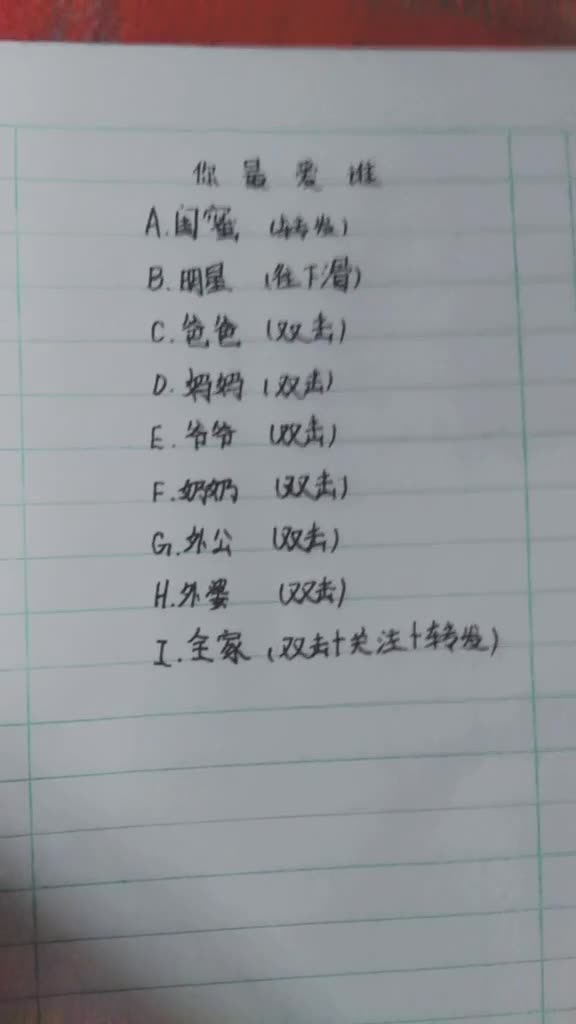 你最爱谁
A.闺蜜 (转发)
B.明星 (往下滑)
C.爸爸 (双击)
D.妈妈 (双击)
E.爷爷 (双击)
F.奶奶 (双击)
G.外公 (双击)
H.外婆 (双击)
I.全家 (双击+关注+转发)